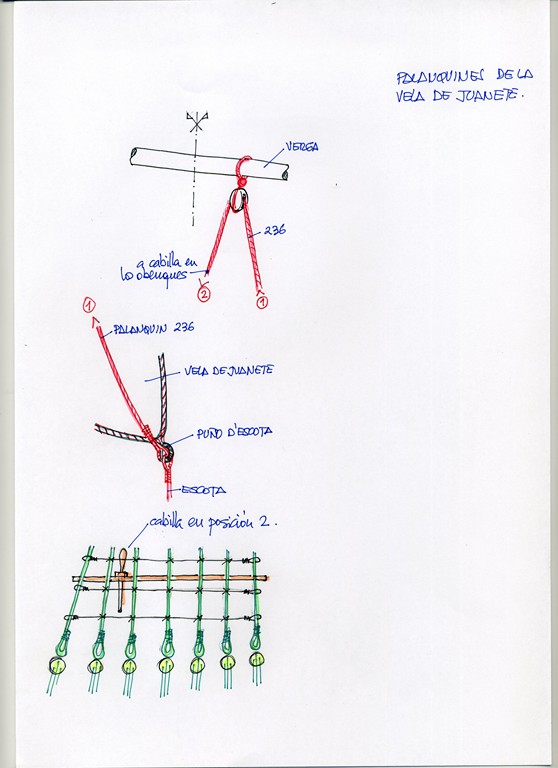 PALANQUINES DE LA
VELA DE JUANETE.
VERGA
236
a cabilla en
los obenques
2
1
1
PALANQUIN 236
VELA DE JUANETE
PUÑO D'ESCOTA
ESCOTA
cabilla en posición 2.